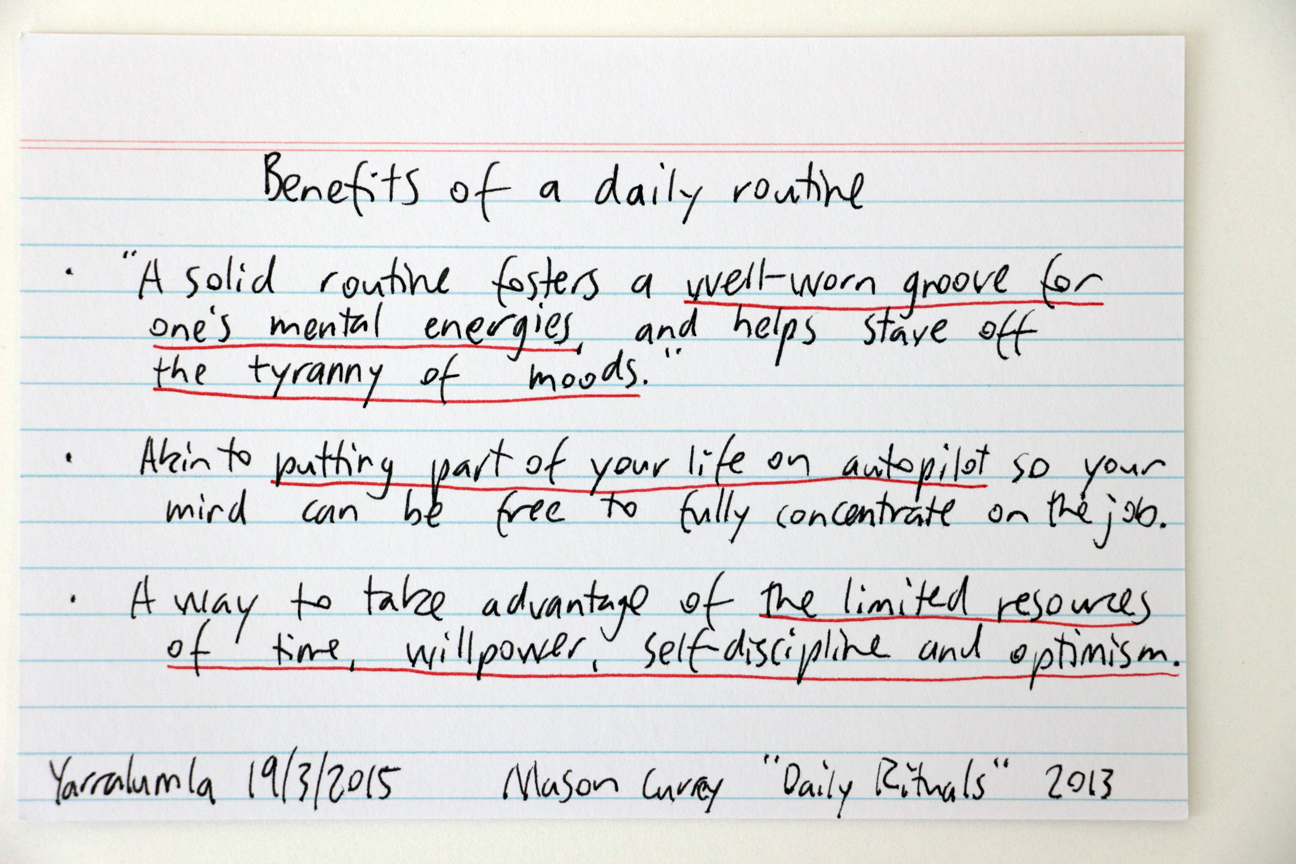 Benefits of a daily routine
· "A solid routine fosters a well-worn groove for
one's mental energies, and helps stave off
the tyranny of moods."
· Akin to putting part of your life on autopilot so your
mind can be free to fully concentrate on the job.
· A way to take advantage of the limited resources
of time, willpower, self-discipline and optimism.
Yarralumla 19/3/2015 Mason Currey "Daily Rituals" 2013